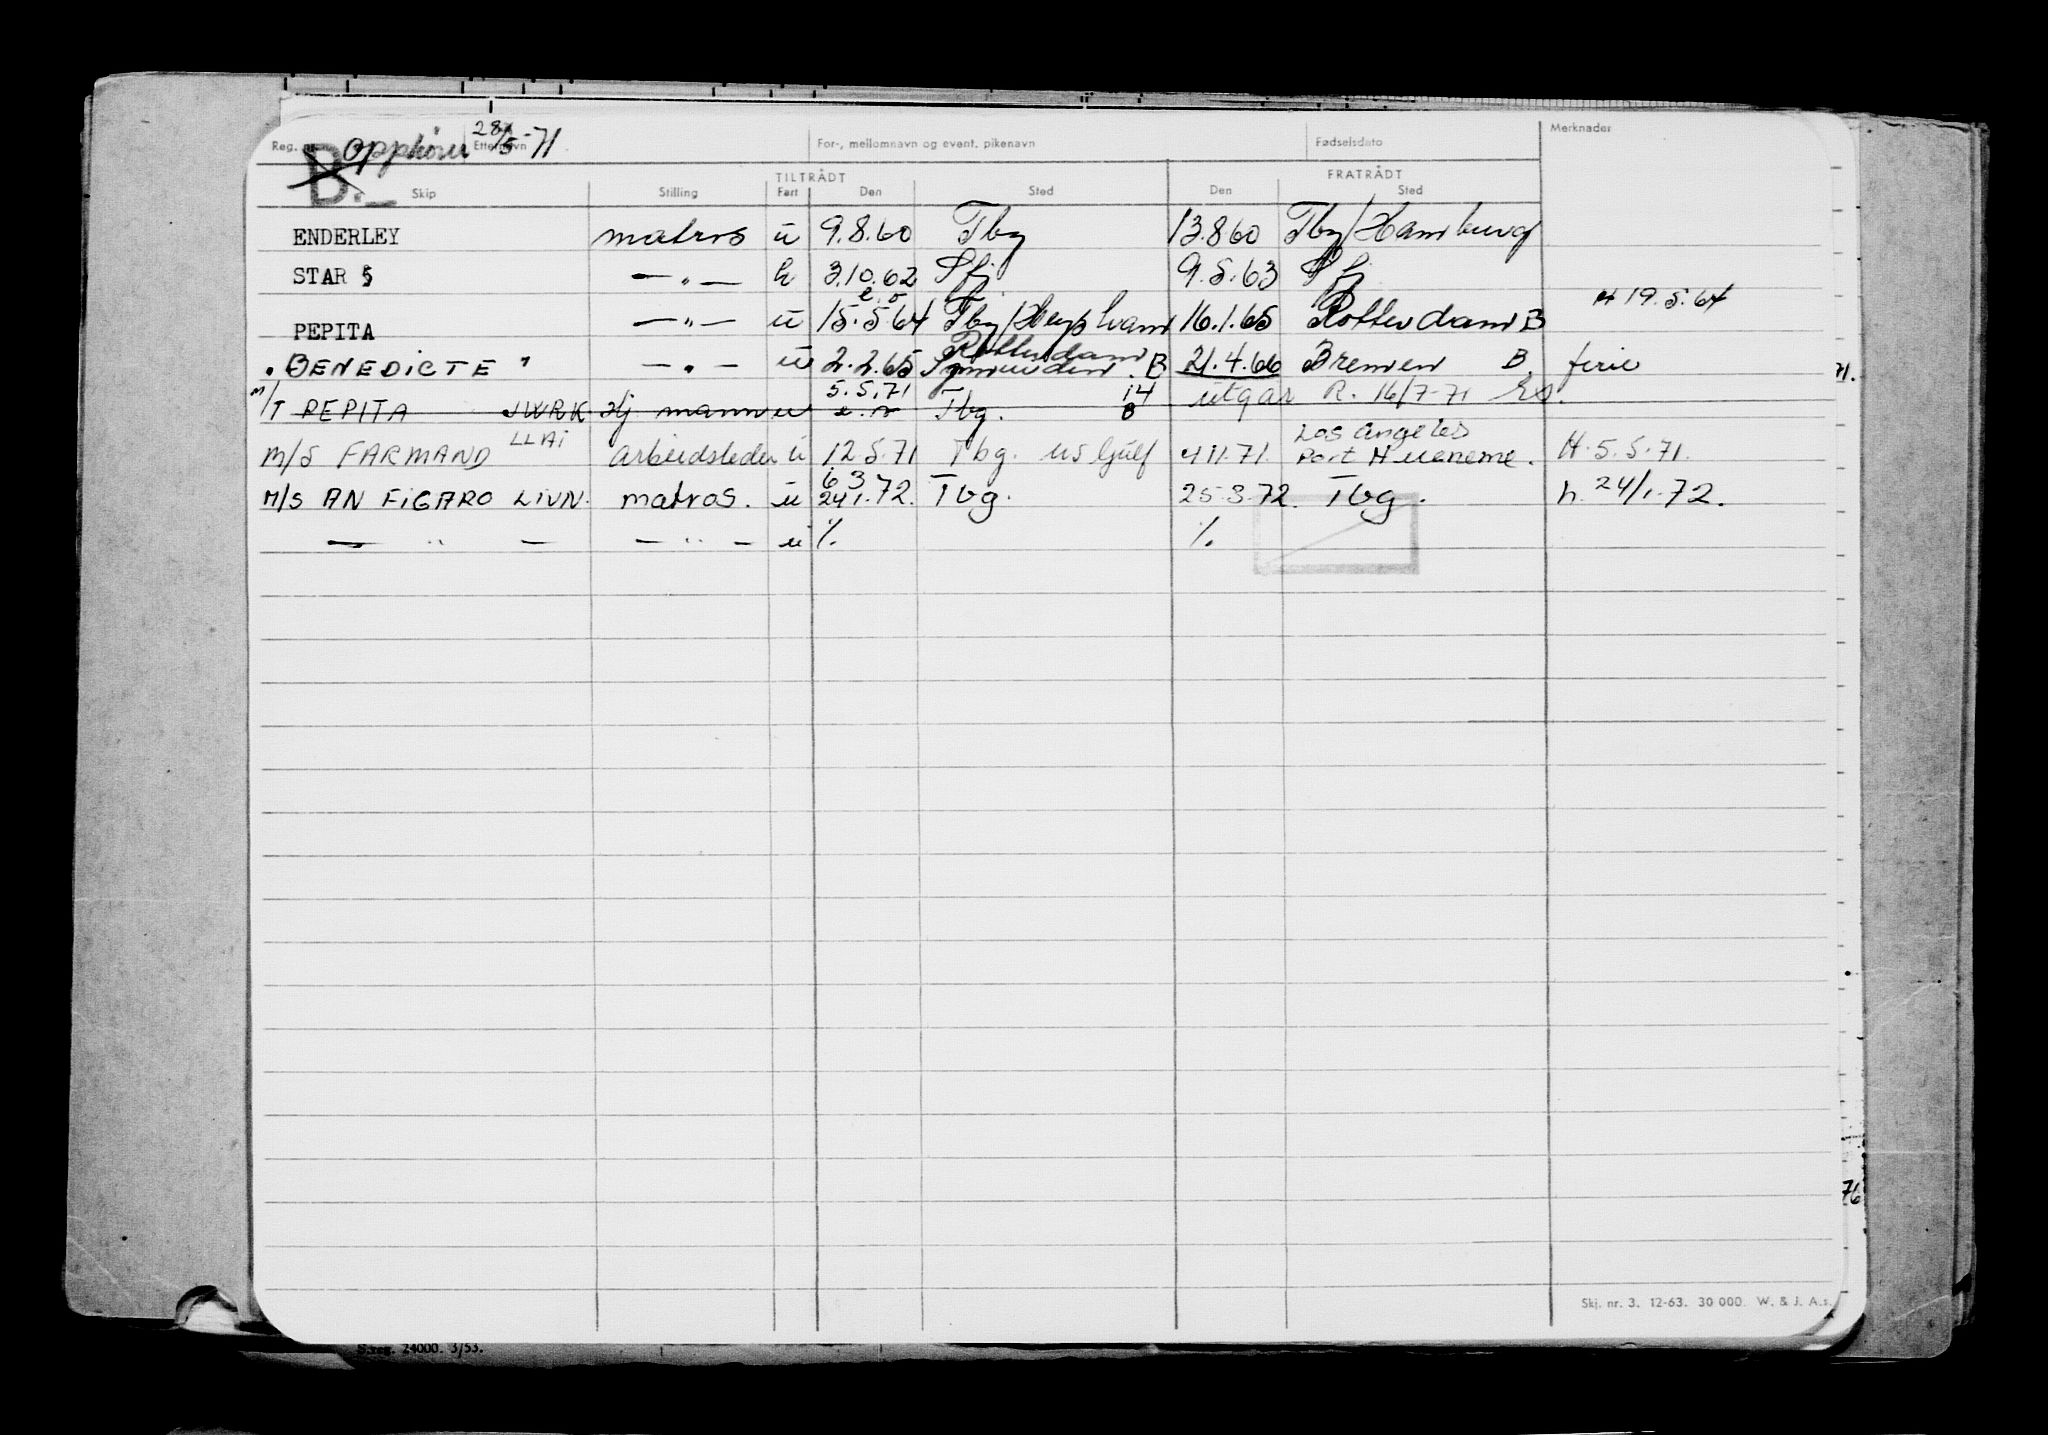 Reg. nr. B. opphører Etternavn 28/5-71 For-, mellomnavn og event. pikenavn Fødselsdato Merknader
TILTRÅDT FRATRÅDT
Skip Stilling Fart Den Sted Den Sted
ENDERLEY matros u 9.8.60 Tbg 13.8.60 Tbg/Hamburg
STAR § — " — h 3.10.62 Sfj 9.5.63 Sfj
PEPITA — " — u 15.5.64 Tbg/ 16.1.65 Rotterdam B H 19.5.64
Rotterdam
BENEDICTE " — " — u 2.2.65 B 21.4.66 Bremen B. ferie
5.5.71 14 utgår R. 16/7-71
M/T PEPITA JWRK Hj mann u Tbg. 8
LLAI Los Angeles
M/S FARMAND arbeidsleder u 12.5.71 Tbg. US Gulf 4 11.71. Port Hueneme. H. 5.5.71.
6 3
M/S AN FIGARO LIVN. matros. u 24 1.72. Tbg. 25.3.72. Tbg. h. 24/1.72.
— " — — " — u %. %.
71.
76
Skj. nr. 3. 12-63. 30 000. W. & J. A.s.
S.reg. 24000. 3/53.